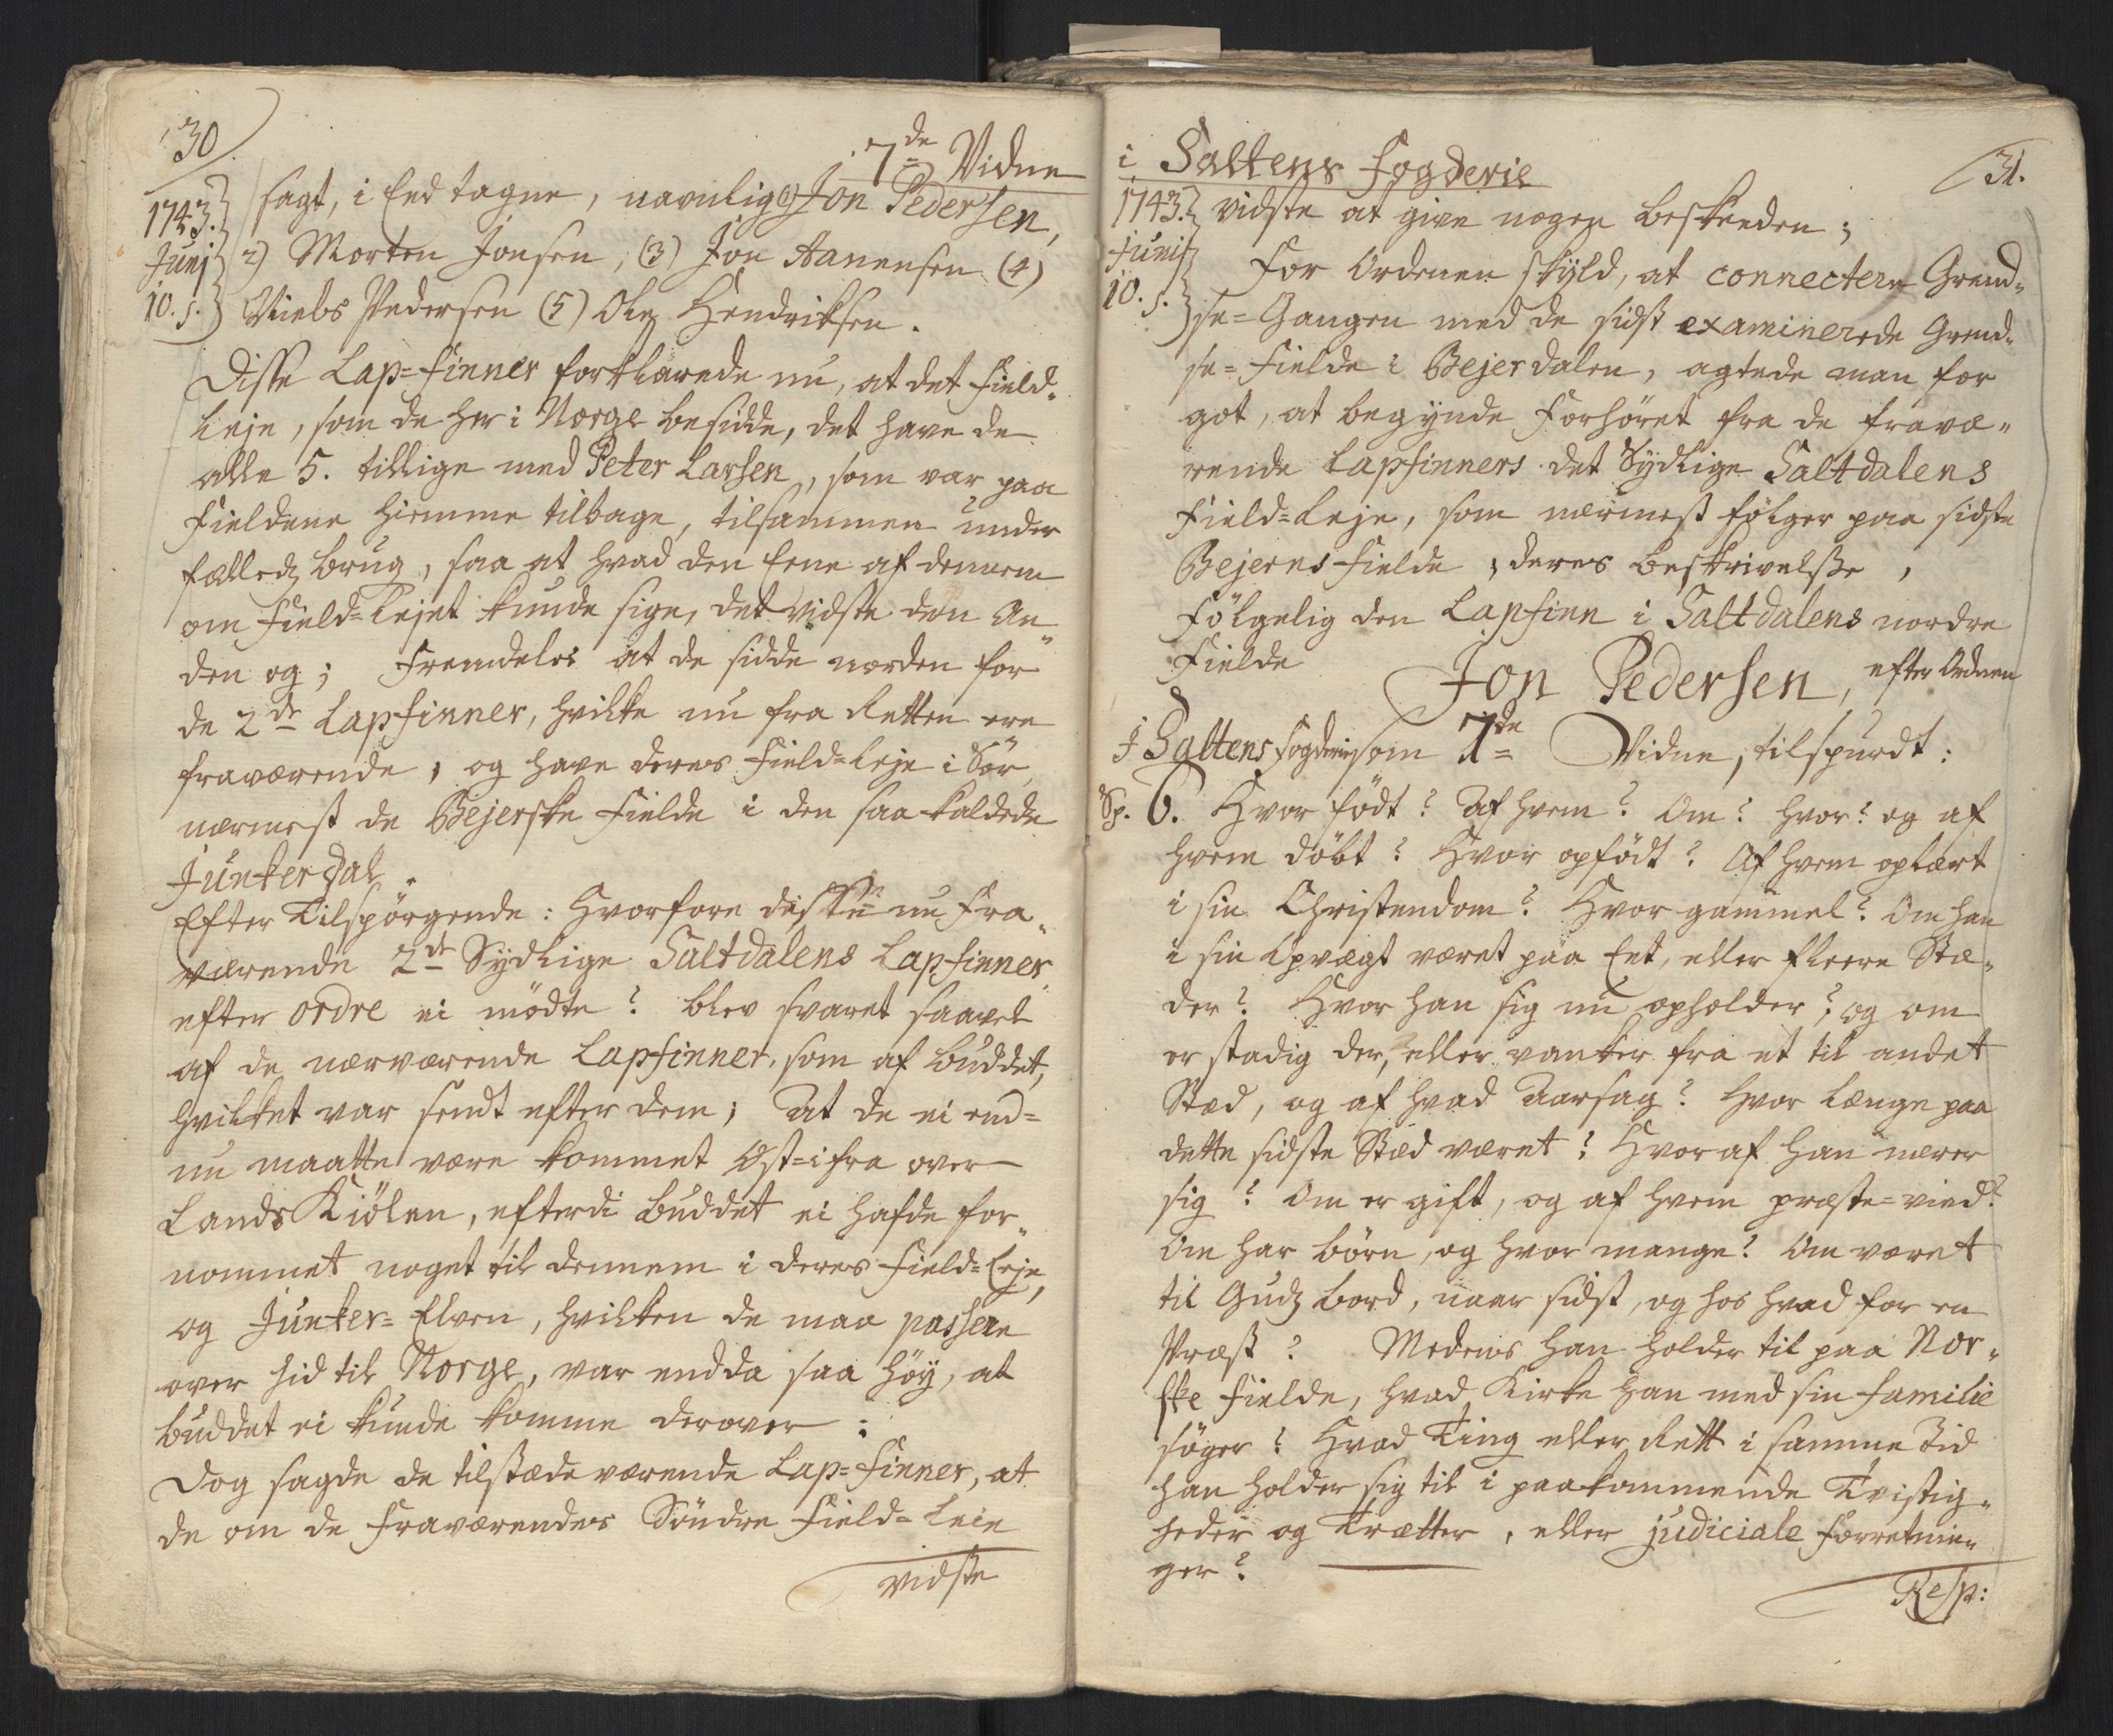 30
7de Vidne
1743.
Junj
10. s.
sagt, i Eed tagne, navnlig 1) Jon Pedersen,
2) Morten Jonsen, (3) Jon Aanensen (4)
Niels Pedersen (5) Ole Hendriksen.
Disse Lap=Finner forklarede nu, at det Field-
Leje, som de her i Norge besidde, det have de
alle 5. tillige med Peter Larsen, som var paa
Fieldene hiemme tilbage, tilsammen under
fælleds brug, saa at hvad den Eene af dennem
om Field=Lejet kunde sige, det vidste den An-
den og; Fremdeles at de sidde norden for
de 2de Lapfinner, hvilke nu fra Retten ere
fraværende, og have deres Field=Leje i Sør
nærmest de Bejerske Fielde i den saa kaldede
Junkerdal.
Efter Tilspörgende: Hvorfore disse nu Fra-
værende 2de Sydlige Saltdalens Lapfinner
efter ordre ei mödte? blev svaret saavel
af de nærværende Lapfinner, som af buddet,
hvilket var sendt efter dem; At de ei end=
nu maatte være kommet Öst=ifra over
Lands Kiölen, efterdi buddet ei hafde for-
nommet noget til dennem i deres Field=Leje,
og Junker=Elven, hvilken de maa passere
over hid til Norge, var endda saa höy, at
buddet ei kunde komme derover:
Dog sagde de tilstædeværende Lap=Finner, at
de om de Fraværendes Söndre Field=Leie
vidste
i Saltens Fogderie
31.
1743.
Junij
10. s.
vidste at give nogen beskeeden;
For Ordenen skyld, at connectere Grend-
se=Gangen med de sidst examinerede Grend-
se=Fielde i Bejerdalen, agtede man for
got, at begynde Forhöret fra de fravæ-
rende Lapfinners det Sydlige Saltdalens
Field=Leje, som nærmest fölger paa sidste
Bejerns Fielde, deres beskrivelsse,
Fölgelig den Lapfinn i Saltdalens nordre
Fielde
Jon Pedersen, efter Ordenen
i Saltens Fogderie som 7de Vidne, tilspurdt:
Sp. 6. Hvor födt? Af hvem? Om? hvor? og af
hvem döbt? Hvor opfödt? Af hvem oplært
i sin Christendom? Hvor gammel? Om han
i sin Opvægt været paa Eet, eller fleere Stæ-
der? Hvor han sig nu opholder? og om
er stadig der, eller vanker fra et til andet
Stæd, og af hvad Aarsag? Hvor længe paa
dette sidste Stæd været? Hvoraf han nærer
sig? Om er gift, og af hvem præste=vied?
Om har börn, og hvor mange? Om været
til Guds bord, naar sidst, og hos hvad for en
Præst? Medens han holder til paa Nor-
ske Fielde, hvad Kirke han med sin Familie
söger? Hvad Ting eller Rett i samme Tid
han holder sig til i paakommende Tvistig-
heder og Trætter, eller judiciale Forretnin-
ger?
Resp: